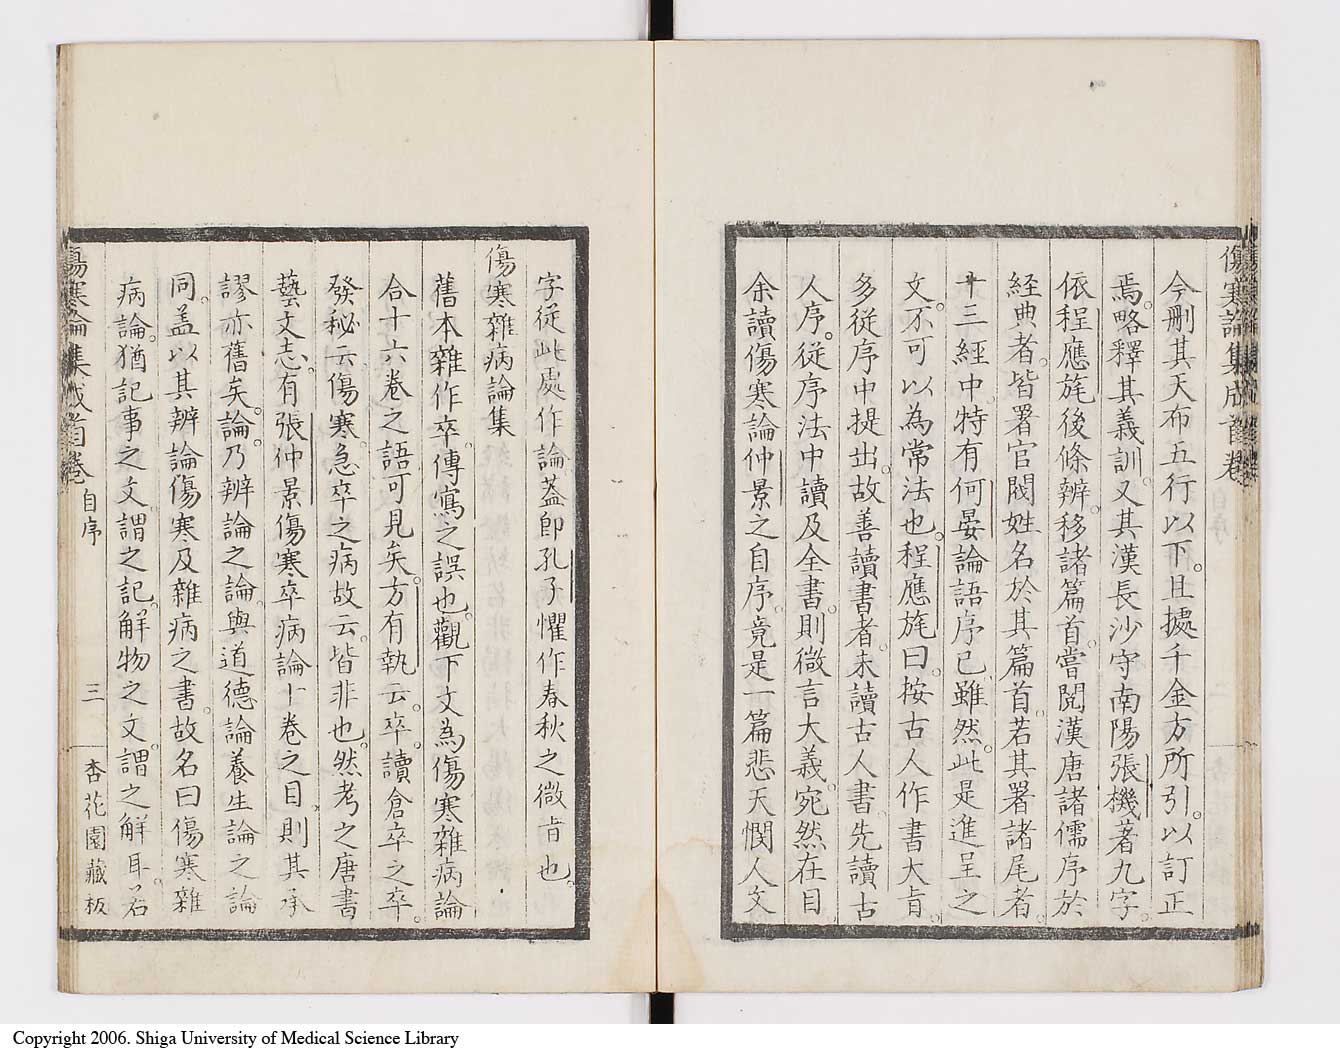 傷寒論集成首卷
今刪其天布五行以下。且據千金方所引。以訂正
焉。略釋其義訓。又其漢長沙守南陽張機著九字。
依程應旄後條辨。移諸篇首。嘗閱漢唐諸儒序於
經典者。皆署官閥姓名於其篇首。若其署諸尾者。
十三經中。特有何晏論語序已。雖然。此是進呈之
文。不可以為常法也。程應旄曰。按古人作書大旨。
多從序中提出。故善讀書者。未讀古人書。先讀古
人序。從序法中讀及全書。則微言大義。宛然在目
余讀傷寒論仲景之自序。竟是一篇悲天憫人文
字從此處作論蓋即孔子懼作春秋之微旨也。
傷寒雜病論集
舊本雜作卒。傳寫之誤也。觀下文為傷寒雜病論
合十六卷之語可見矣。方有執云。卒。讀倉卒之卒。
發秘云傷寒。急卒之病故云。皆非也。然考之唐書
藝文志。有張仲景傷寒卒病論十卷之目。則其承
謬亦舊矣。論。乃辨論之論。與道德論養生論之論
同。蓋以其辨論傷寒及雜病之書。故名曰傷寒雜
病論。猶記事之文。謂之記。解物之文。謂之解耳。若
傷寒論集成首卷 自序 三 杏花園藏板
Copyright 2006. Shiga University of Medical Science Library